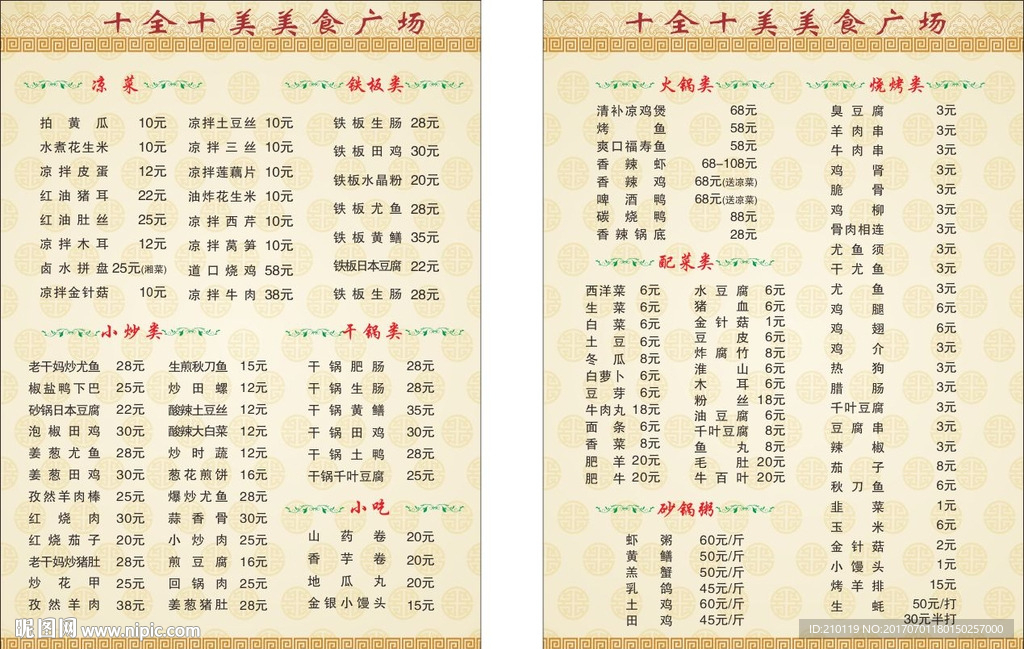 十全十美美食广场
凉菜
拍黄瓜 10元
水煮花生米 10元
凉拌皮蛋 12元
红油猪耳 22元
红油肚丝 25元
凉拌木耳 12元
卤水拼盘 25元(湘菜)
凉拌金针菇 10元
凉拌土豆丝 10元
凉拌三丝 10元
凉拌莲藕片 10元
油炸花生米 10元
凉拌西芹 10元
凉拌莴笋 10元
道口烧鸡 58元
凉拌牛肉 38元
铁板类
铁板生肠 28元
铁板田鸡 30元
铁板水晶粉 20元
铁板尤鱼 28元
铁板黄鳝 35元
铁板日本豆腐 22元
铁板生肠 28元
小炒类
老干妈炒尤鱼 28元
椒盐鸭下巴 25元
砂锅日本豆腐 22元
泡椒田鸡 30元
姜葱尤鱼 28元
姜葱田鸡 30元
孜然羊肉棒 25元
红烧肉 30元
红烧茄子 20元
老干妈炒猪肚 28元
炒花甲 25元
孜然羊肉 38元
生煎秋刀鱼 15元
炒田螺 12元
酸辣土豆丝 12元
酸辣大白菜 12元
炒时蔬 12元
葱花煎饼 16元
爆炒尤鱼 28元
蒜香骨 30元
小炒肉 25元
煎豆腐 16元
回锅肉 25元
姜葱猪肚 28元
干锅类
干锅肥肠 28元
干锅生肠 28元
干锅黄鳝 35元
干锅田鸡 30元
干锅土鸭 28元
干锅千叶豆腐 25元
小吃
山药卷 20元
香芋卷 20元
地瓜丸 20元
金银小馒头 15元
昵图网 www.nipic.com
十全十美美食广场
火锅类
清补凉鸡煲 68元
烤鱼 58元
爽口福寿鱼 58元
香辣虾 68-108元
香辣鸡 68元(送凉菜)
啤酒鸭 68元(送凉菜)
碳烧鸭 88元
香辣锅底 28元
配菜类
西洋菜 6元
生菜 6元
白菜 6元
土豆 6元
冬瓜 8元
白萝卜 6元
豆芽 6元
牛肉丸 18元
面条 6元
香菜 8元
肥羊 20元
肥牛 20元
水豆腐 6元
猪血 6元
金针菇 1元
豆皮 6元
炸腐竹 8元
淮山 6元
木耳 6元
粉丝 18元
油豆腐 6元
千叶豆腐 8元
鱼丸 8元
毛肚 20元
牛百叶 20元
砂锅粥
虾粥 60元/斤
黄鳝 50元/斤
羔蟹 50元/斤
乳鸽 45元/斤
土鸡 60元/斤
田鸡 45元/斤
烧烤类
臭豆腐 3元
羊肉串 3元
牛肉串 3元
鸡肾 3元
脆骨 3元
鸡柳 3元
骨肉相连 3元
尤鱼须 3元
干尤鱼 3元
尤鱼 3元
鸡腿 6元
鸡翅 6元
鸡介 3元
热狗 3元
腊肠 3元
千叶豆腐 3元
豆腐串 3元
辣椒 3元
茄子 8元
秋刀鱼 6元
韭菜 1元
玉米 6元
金针菇 2元
小馒头 1元
烤羊排 15元
生蚝 50元/打
30元半打
ID:210119 NO:20170701180150257000